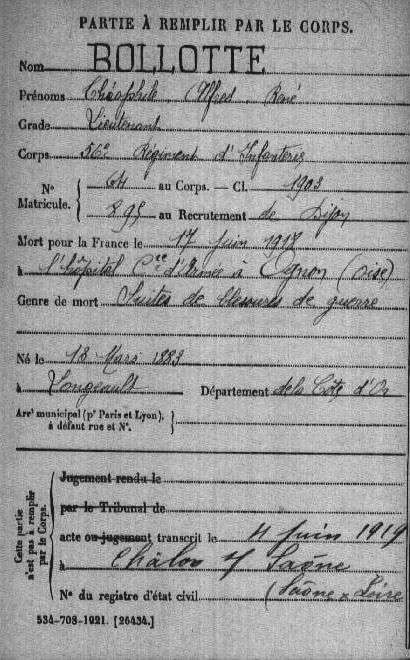 PARTIE À REMPLIR PAR LE CORPS.
Nom BOLLOTTE
Prénoms Théophile Alfred René
Grade Lieutenant
Corps 56e Régiment d'Infanterie
N° Matricule. { 64 au Corps. — Cl. 1903
895 au Recrutement de Dijon
Mort pour la France le 17 Juin 1917
à l'hôpital d'Armée à Ognon (Oise)
Genre de mort Suites de blessures de guerre
Né le 18 Mars 1883
à Longeault Département de la Côte d'Or
Arrt municipal (pr Paris et Lyon),
à défaut rue et N°.
Cette partie n'est pas à remplir par le Corps.
Jugement rendu le
par le Tribunal de
acte ou jugement transcrit le 4 Juin 1919
à Châlon s/ Saône
N° du registre d'état civil (Saône & Loire
534-708-1921. [26434.]